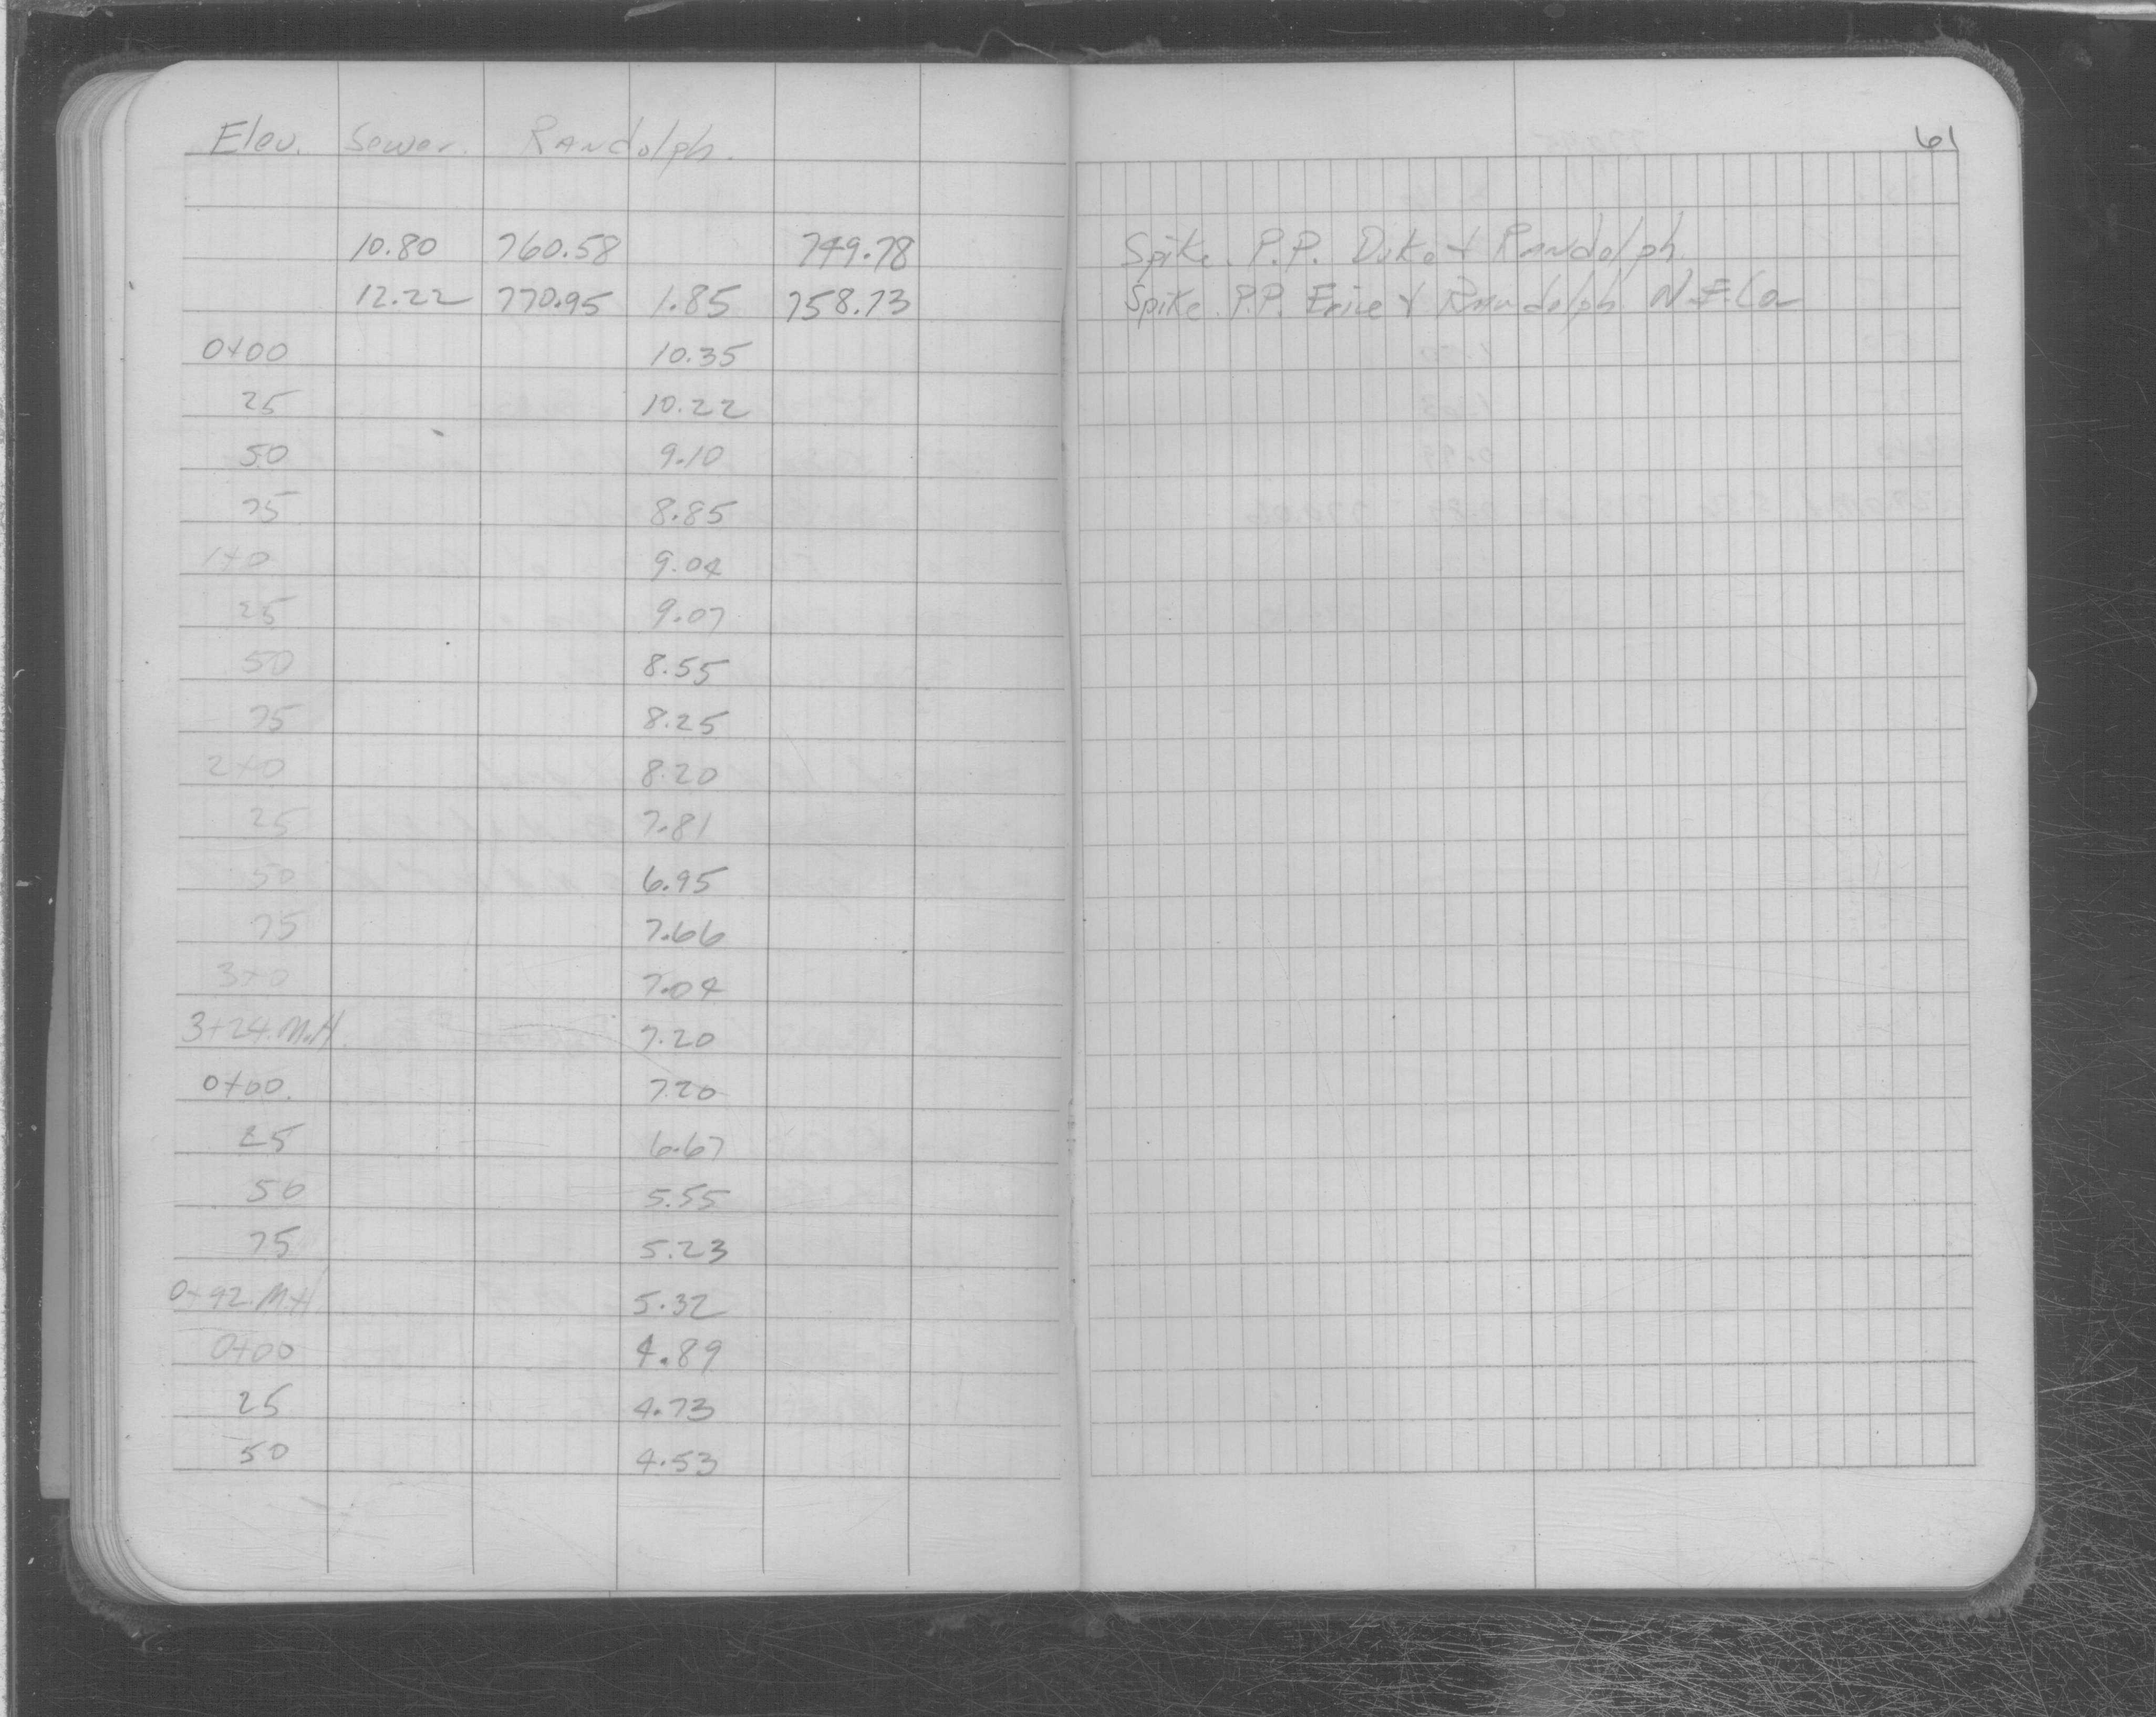 Elev. Sewer. Randolph.
61
10.80 760.58 749.78 Spike. P.P. Duke & Randolph.
12.22 770.95 1.85 758.73 Spike. P.P. Erice & Randolph N.E. Cor
0+00 10.35
25 10.22
50 9.10
75 8.85
1+0 9.04
25 9.07
50 8.55
75 8.25
2+0 8.20
25 7.81
50 6.95
75 7.66
3+0 7.04
3+24. M.H. 7.20
0+00. 7.20
25 6.67
50 5.55
75 5.23
0+92. M.H 5.32
0+00 4.89
25 4.73
50 4.53